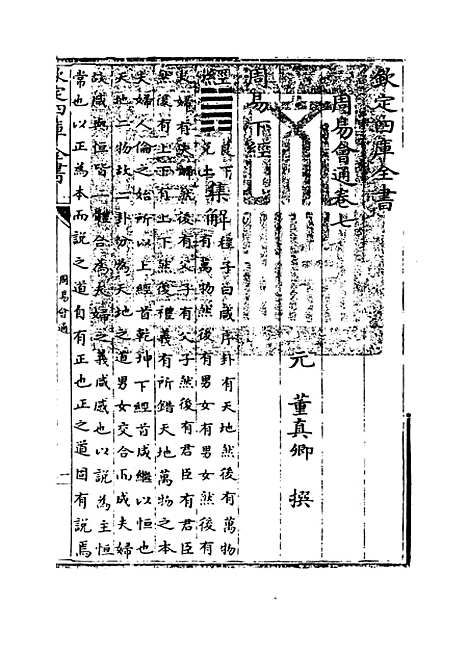 欽定四庫全書
周易會通卷七
元 董真卿 撰
周易下經
經 艮下兌上 集解 程子曰咸序卦有天地然後有萬物
有萬物然後有男女有男女然後有
夫婦有夫婦然後有父子有父子然後有君臣有君臣
然後有上下有上下然後禮義有所錯天地萬物之本
夫婦人倫之始所以上經首乾坤下經首咸繼以恒也
天地二物故二卦分為天地之道男女交合而成夫婦
故咸與恒皆二體合為夫婦之義咸感也以說為主恒
常也以正為本而說之道自有正也正之道固有說焉
欽定四庫全書
周易會通
一